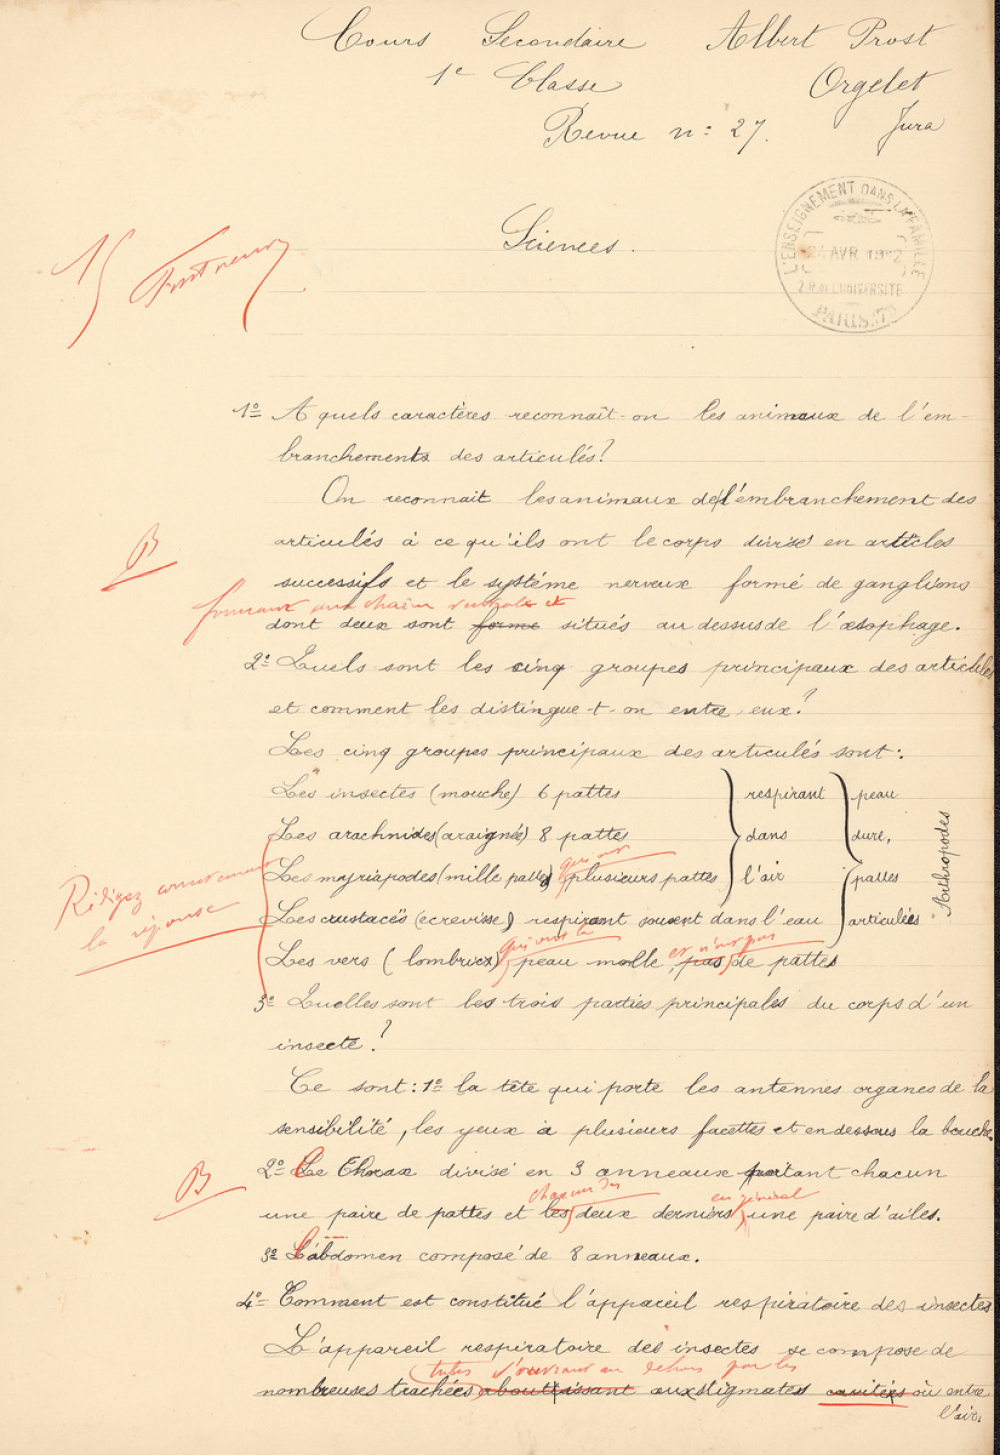 Cours Secondaire Albert Prost
1e Classe Orgelet
Revue n: 27. Jura
L'ENSEIGNEMENT DANS LA FAMILLE
24 AVR 19 2
2.R.DE L'UNIVERSITE
PARIS.7
Sciences.
15
1º A quels caractères reconnaît-on les animaux de l'em-
branchements des articulés?
On reconnait les animaux de l'embranchement des
B
articulés à ce qu'ils ont le corps divisé en articles
successifs et le système nerveux formé de ganglions
formant une chaîne ventrale et
dont deux sont forme situés au dessus de l'œsophage.
2º Quels sont les cinq groupes principaux des articulés
et comment les distingue-t-on entre eux?
Les cinq groupes principaux des articulés sont:
Les insectes (mouche) 6 pattes respirant peau
Les arachnides (araignée) 8 pattes dans dure,
qui ont
Les myriapodes (mille pattes) plusieurs pattes l'air pattes
Arthropodes
Rédigez
la réponse
Les crustacés (ecrevisse) respirant souvent dans l'eau articulées
qui ont la et n'ont pas
Les vers (lombrics) peau molle, pas de pattes
3º Quelles sont les trois parties principales du corps d'un
insecte?
Ce sont: 1º la tête qui porte les antennes organes de la
sensibilité, les yeux à plusieurs facettes et en dessous la bouche.
2º Le Thorax divisé en 3 anneaux portant chacun
B
chacun des en général
une paire de pattes et les deux derniers, une paire d'ailes.
3º L'abdomen composé de 8 anneaux.
4º Comment est constitué l'appareil respiratoire des insectes
L'appareil respiratoire des insectes se compose de
tubes s'ouvrant au dehors par les
nombreuses trachées aboutissant aux stigmates cavités où entre
l'air.